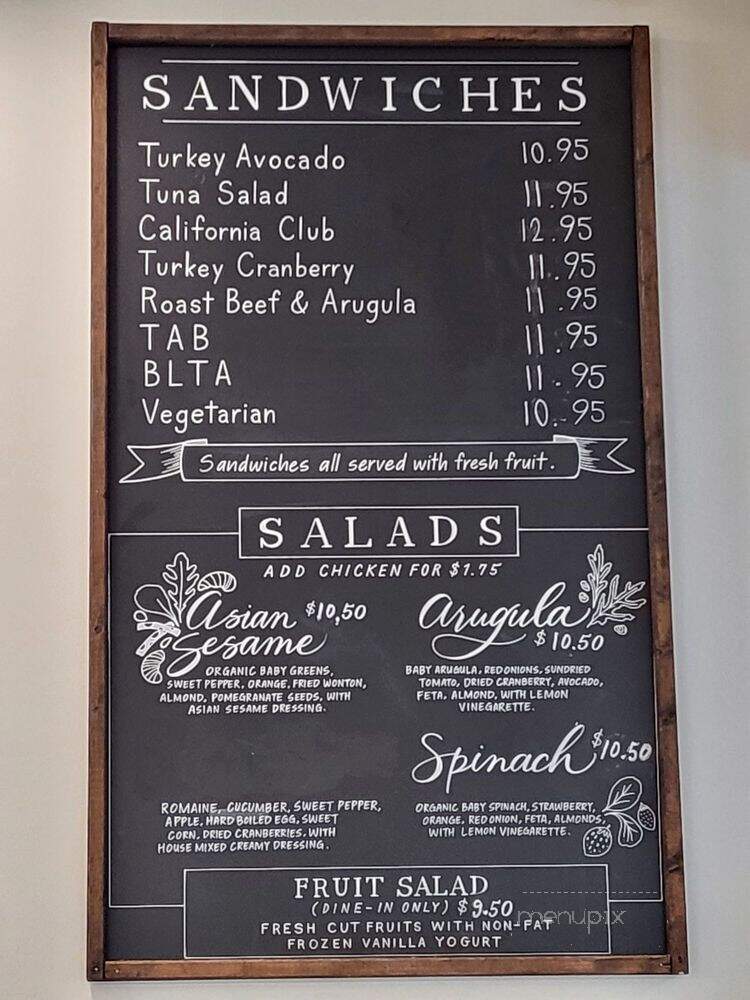 SANDWICHES
Turkey Avocado 10.95
Tuna Salad 11.95
California Club 12.95
Turkey Cranberry 11.95
Roast Beef & Arugula 11.95
TAB 11.95
BLTA 11.95
Vegetarian 10.95
Sandwiches all served with fresh fruit.
SALADS
ADD CHICKEN FOR $1.75
Asian $10,50
Sesame
ORGANIC BABY GREENS,
SWEET PEPPER, ORANGE, FRIED WONTON,
ALMOND, POMEGRANATE SEEDS, WITH
ASIAN SESAME DRESSING.
Arugula
$10.50
BABY ARUGULA, RED ONIONS, SUNDRIED
TOMATO, DRIED CRANBERRY, AVOCADO,
FETA, ALMOND, WITH LEMON
VINEGARETTE.
ROMAINE, CUCUMBER, SWEET PEPPER,
APPLE, HARD BOILED EGG, SWEET
CORN, DRIED CRANBERRIES, WITH
HOUSE MIXED CREAMY DRESSING.
Spinach $10.50
ORGANIC BABY SPINACH, STRAWBERRY,
ORANGE, RED ONION, FETA, ALMONDS,
WITH LEMON VINEGARETTE.
FRUIT SALAD
(DINE-IN ONLY) $9.50
FRESH CUT FRUITS WITH NON-FAT
FROZEN VANILLA YOGURT
menupix